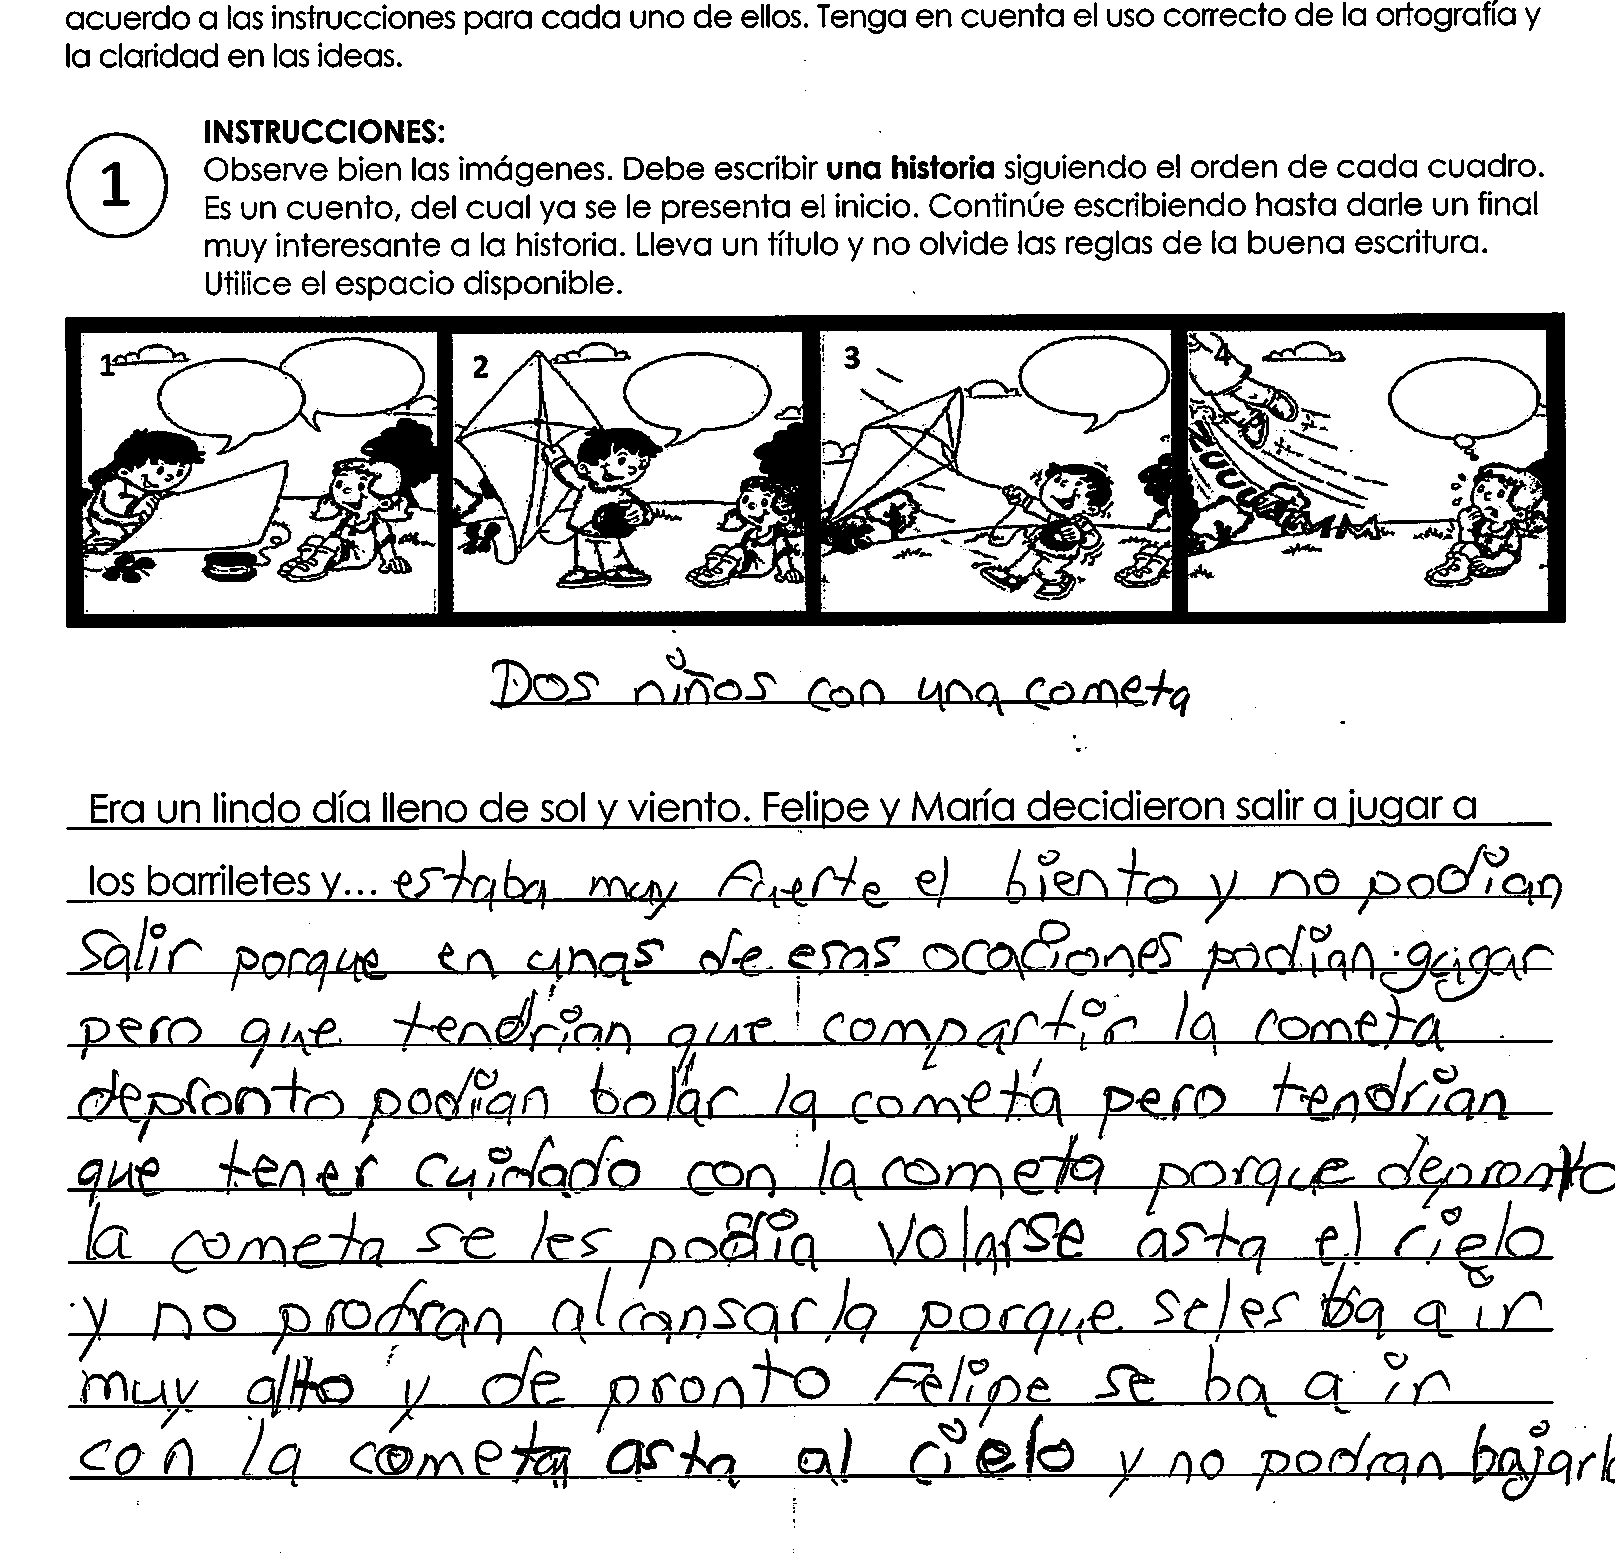 acuerdo a las instrucciones para cada uno de ellos. Tenga en cuenta el uso correcto de la ortografía y
la claridad en las ideas.
1
INSTRUCCIONES:
Observe bien las imágenes. Debe escribir una historia siguiendo el orden de cada cuadro.
Es un cuento, del cual ya se le presenta el inicio. Continúe escribiendo hasta darle un final
muy interesante a la historia. Lleva un título y no olvide las reglas de la buena escritura.
Utilice el espacio disponible.
1 2 3 4
Dos niños con una cometa
Era un lindo día lleno de sol y viento. Felipe y María decidieron salir a jugar a
los barriletes y... estaba muy Fuerte el biento y no podian
Salir porque en unas de esas ocaciones podian gugar
pero que tendrian que compartir la cometa
depronto podian bolar la cometa pero tendrian
que tener cuidado con la cometa porque depronto
la cometa se les podia volarse asta el cielo
y no prodran alcansarla porque seles ba a ir
muy alto y de pronto Felipe se ba a ir
con la cometa asta al cielo y no podran bajarl